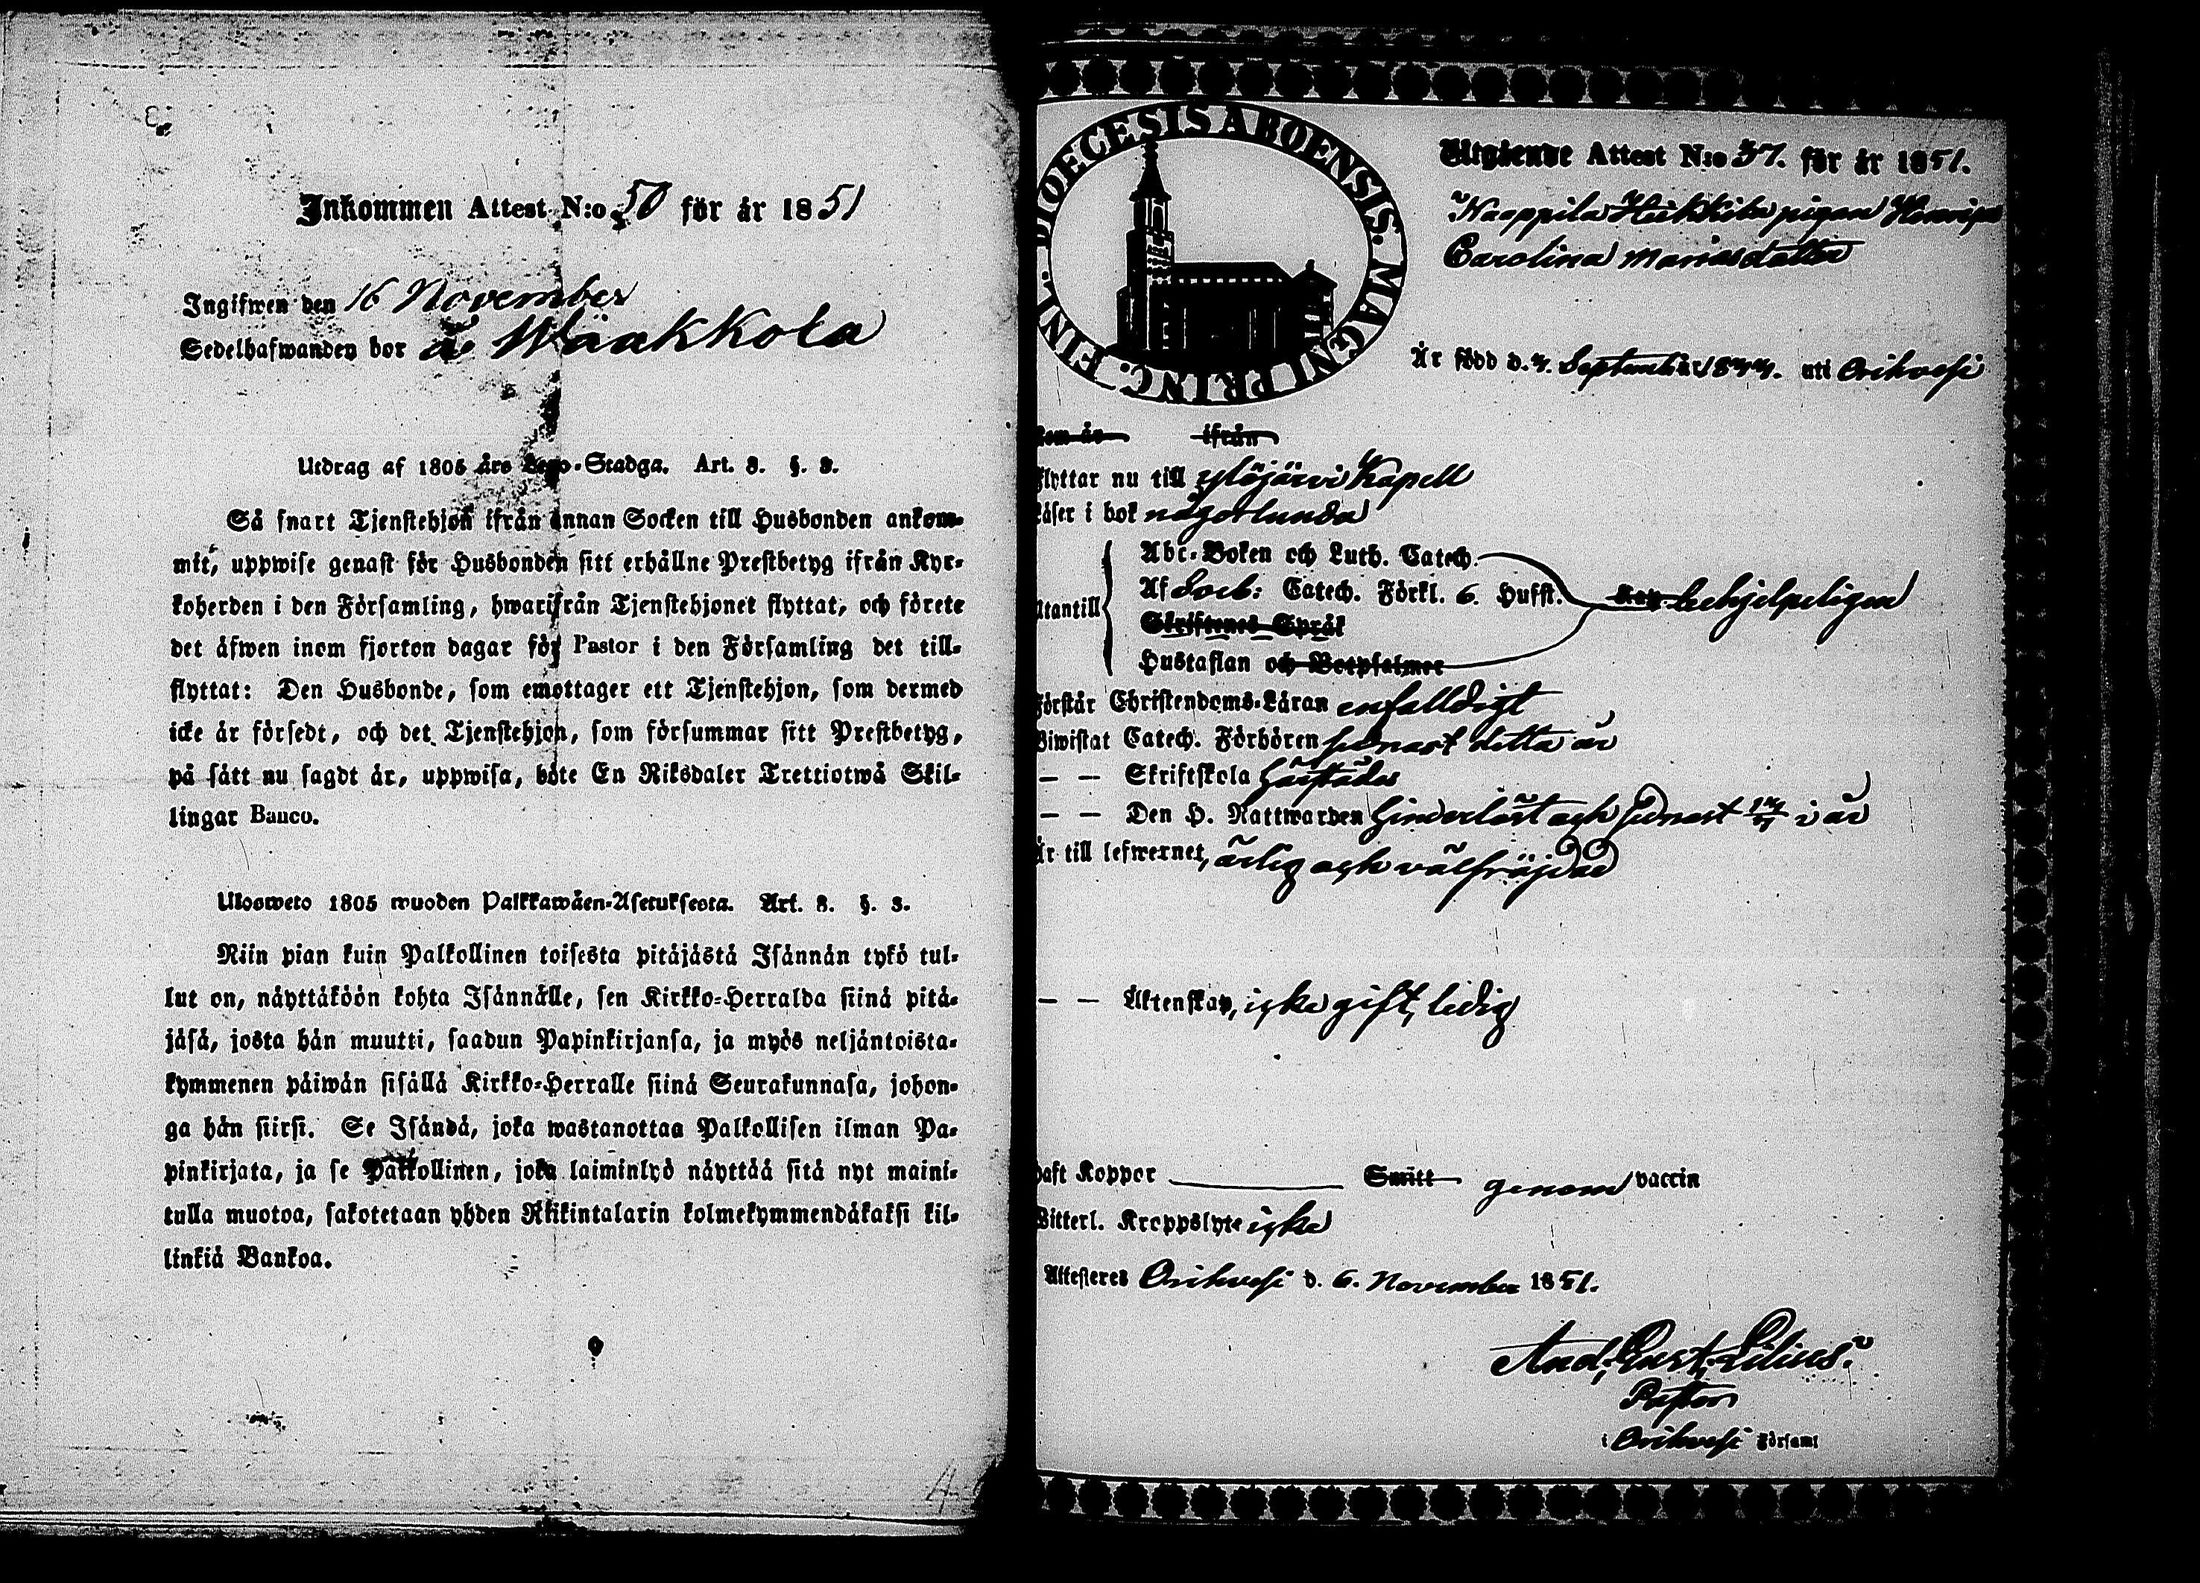 Inkommen Attest N:o 50 för år 1851
Ingifwen den 16 November
Sedelhafwanden bor å Wäakkola
Utdrag af 1805 års Lego-Stadga. Art. 8. §. 3.
Så snart Tjenstehjon ifrån annan Socken till Husbonden ankom-
mit, uppwise genast för Husbonden sitt erhållne Prestbetyg ifrån Kyr-
koherden i den Församling, hwarifrån Tjenstehjonet flyttat, och förete
det äfwen inom fjorton dagar för Pastor i den Församling det till-
flyttat: Den Husbonde, som emottager ett Tjenstehjon, som dermed
icke är försedt, och det Tjenstehjon, som försummar sitt Prestbetyg,
på sätt nu sagdt är, uppwisa, böte En Riksdaler Trettiotwå Skil-
lingar Banco.
Ulosweto 1805 wuoden Palkkawäen-Asetuksesta. Art. 8. §. 3.
Niin pian kuin Palkollinen toisesta pitäjästä Isännän tykö tul-
lut on, näyttäköön kohta Isännälle, sen Kirkko-Herralda siinä pitä-
jäsä, josta hän muutti, saadun Papinkirjansa, ja myös neljäntoista-
kymmenen päiwän sisällä Kirkko-Herralle siinä Seurakunnasa, johon-
ga hän siirsi. Se Isändä, joka wastanottaa Palkollisen ilman Pa-
pinkirjata, ja se Palkollinen, joka laiminlyö näyttää sitä nyt maini-
tulla muotoa, sakotetaan yhden Riikintalarin kolmekymmendäkaksi kil-
linkiä Bankoa.
DIOECESIS ABOENSIS. MAGNI PRINC. FINL.
Utgående Attest N:o 57. för år 1851.
Heikkila pigan
Carolina Mariasdotter
Är född d. September 18 uti Orihvesi
ifrån
Flyttar nu till Ylöjärvi Kapell
Läser i bok någorlunda
Abc-Boken och Luth. Catech.
Utantill Af Soeb: Catech. Förkl. 6. Hufst. behjelpligen
Skriftenes Språk
Hustaflan och Botpsalmer
Förstår Christendoms-Läran enfalldigt
Biwistat Catech. Förhören senast detta år
— — Skriftskola
— — Den H. Nattwarden hinderlöst och senast i år
Är till lefwernet, ärlig och välfräjdad
— — Äktenskap, icke gift, ledig
Haft Koppor genom vaccin
Witterl. Kroppslyte icke
Attesteres Orihvesi d. 6. November 1851.
And. Gust. Lilius.
Pastor
i Orihvesi Församl